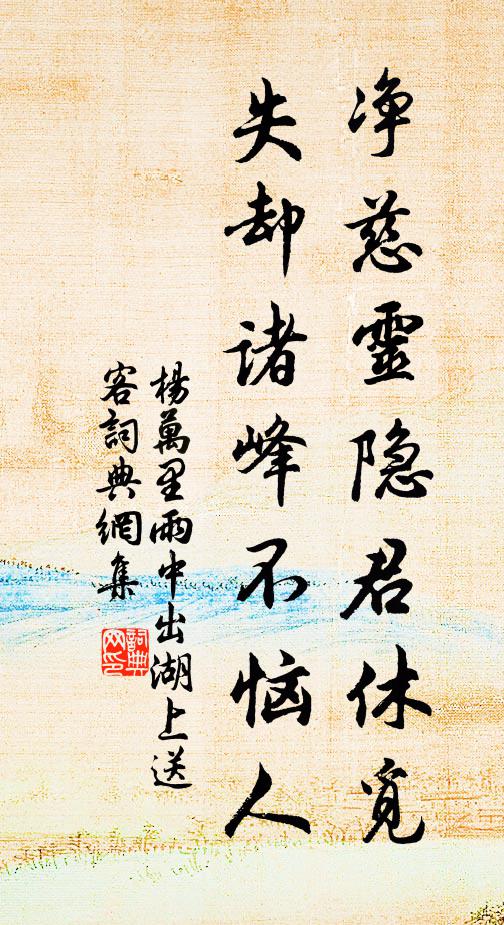 净慈靈隐君休覓
失却诸峰不恼人
楊萬里雨中出湖上送
客詞典網集
詞典
网印